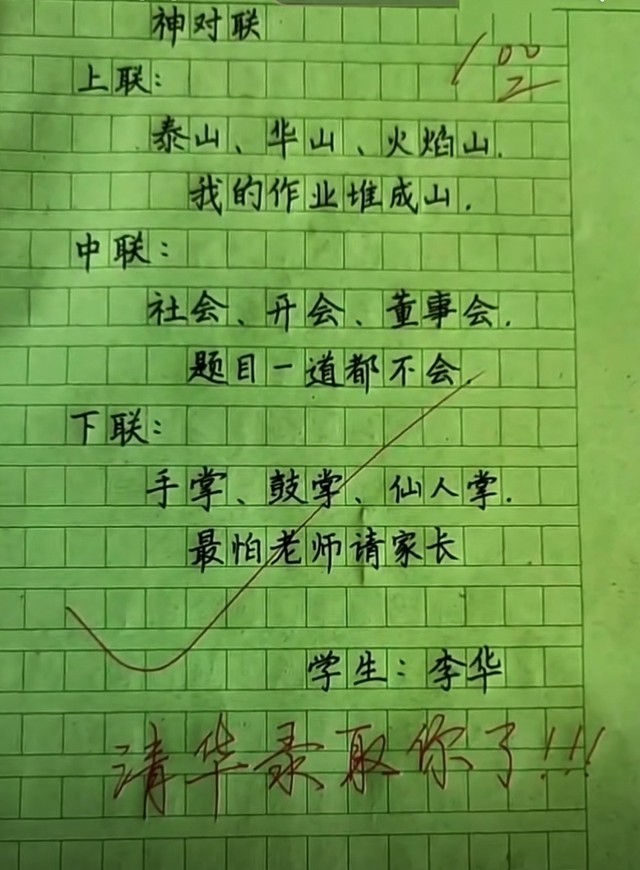 神对联
100
上联：
泰山、华山、火焰山.
我的作业堆成山.
中联：
社会、开会、董事会.
题目一道都不会.
下联：
手掌、鼓掌、仙人掌.
最怕老师请家长
学生：李华
清华录取你了!!!